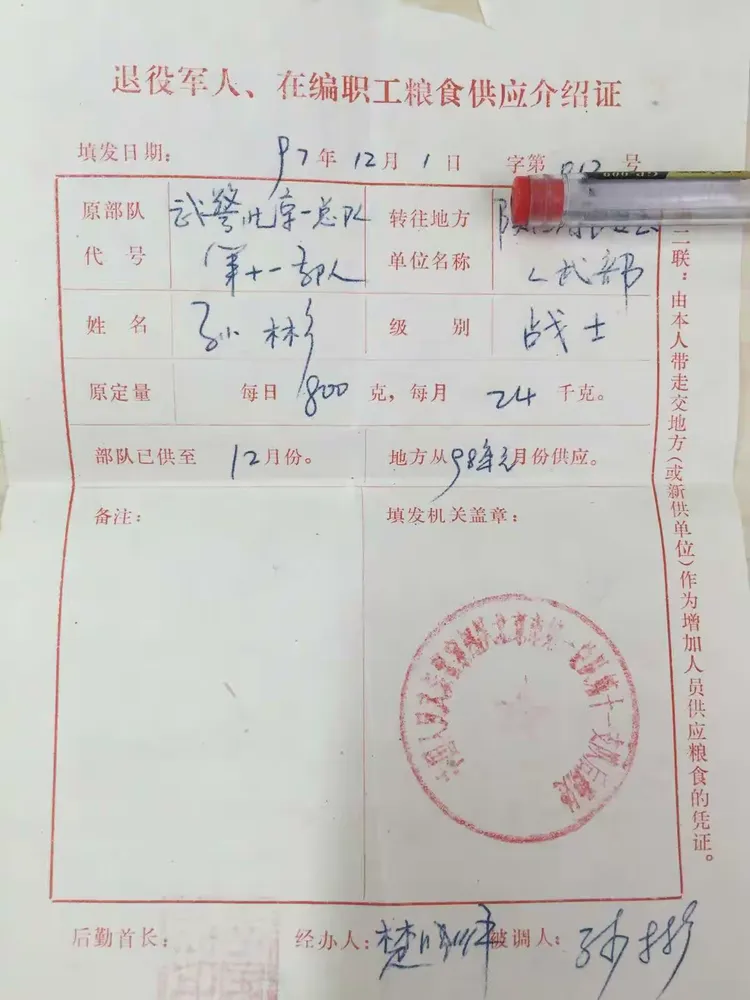 退役军人、在编职工粮食供应介绍证
填发日期: 97年12月1日 字第 号
原部队代号 武警北京一总队第十一部队 转往地方单位名称 人武部
姓名 孙彬 级别 战士
原定量 每日800克,每月24千克。
部队已供至12月份。 地方从98年元月份供应。
备注: 填发机关盖章:
二联:由本人带走交地方(或新供单位)作为增加人员供应粮食的凭证。
后勤首长: 经办人:楚 被调人:孙彬